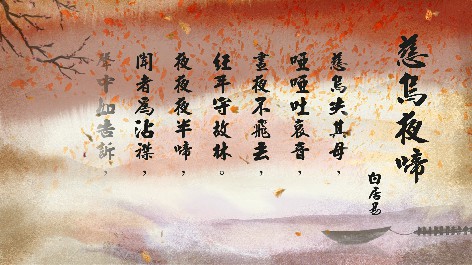 慈烏夜啼
白居易
慈烏失其母，
啞啞吐哀音，
晝夜不飛去，
經年守故林。
夜夜夜半啼，
聞者為沾襟，
聲中如告訴，